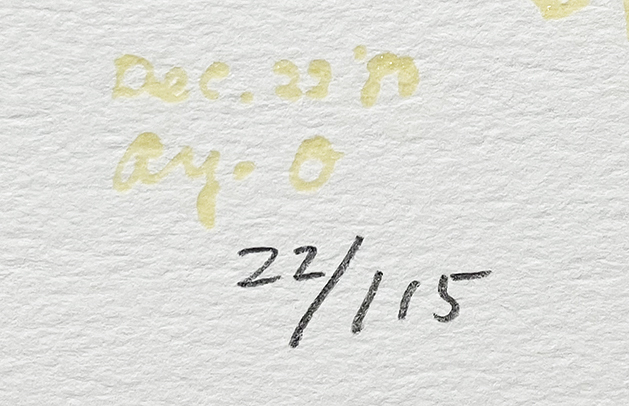 Dec. 22 '
ay. O
22/115